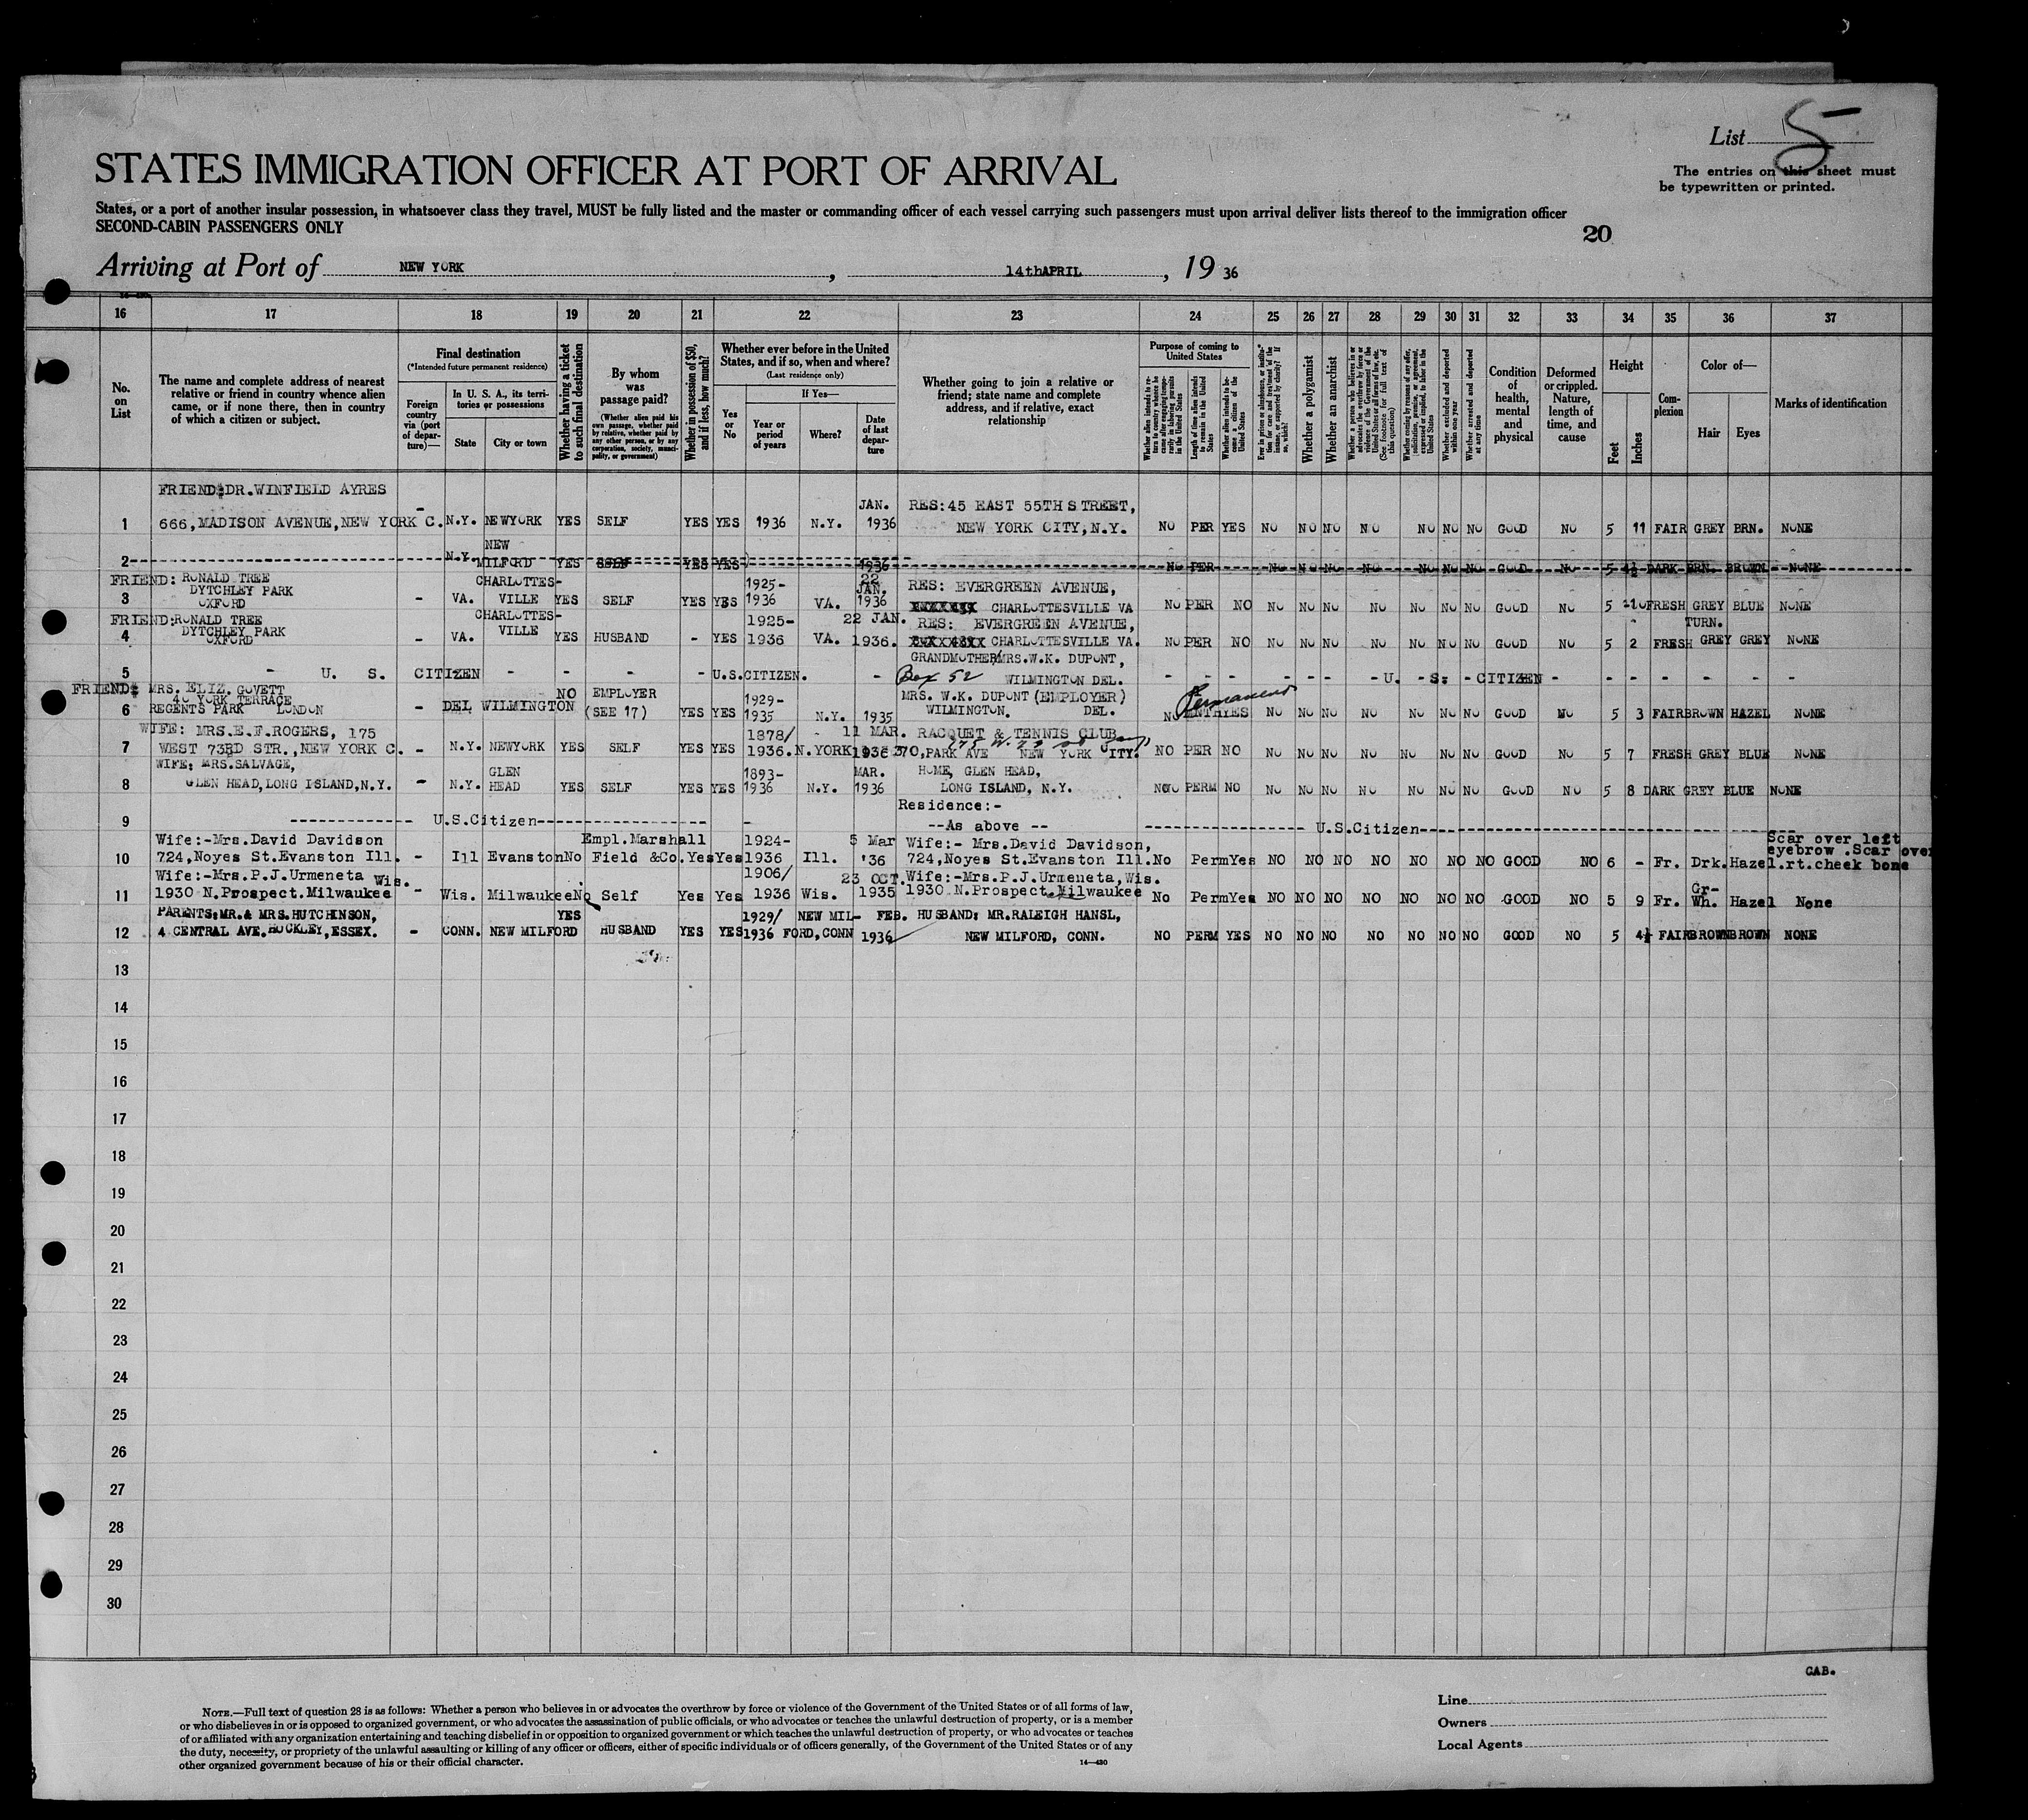 List 5
The entries on this sheet must
be typewritten or printed.
STATES IMMIGRATION OFFICER AT PORT OF ARRIVAL
States, or a port of another insular possession, in whatsoever class they travel, MUST be fully listed and the master or commanding officer of each vessel carrying such passengers must upon arrival deliver lists thereof to the immigration officer
SECOND-CABIN PASSENGERS ONLY
20
Arriving at Port of NEW YORK, 14thAPRIL, 19 36
16 17 18 19 20 21 22 23 24 25 26 27 28 29 30 31 32 33 34 35 36 37
No. on List
The name and complete address of nearest relative or friend in country whence alien came, or if none there, then in country of which a citizen or subject.
Final destination
(*Intended future permanent residence)
Foreign country via (port of departure)—
In U. S. A., its territories or possessions
State
City or town
Whether having a ticket to such final destination
By whom was passage paid?
(Whether alien paid his own passage, whether paid by relative, whether paid by any other person, or by any corporation, society, municipality, or government)
Whether in possession of $50, and if less, how much?
Whether ever before in the United States, and if so, when and where?
(Last residence only)
Yes or No
If Yes—
Year or period of years
Where?
Date of last departure
Whether going to join a relative or friend; state name and complete address, and if relative, exact relationship
Purpose of coming to United States
Whether alien intends to return to country whence he came after engaging temporarily in laboring pursuits in the United States
Length of time alien intends to remain in the United States
Whether alien intends to become a citizen of the United States
Ever in prison or almshouse, or institution for care and treatment of the insane, or supported by charity? If so, which?
Whether a polygamist
Whether an anarchist
Whether a person who believes in or advocates the overthrow by force or violence of the Government of the United States or all forms of law, etc. (See footnote for full text of this question)
Whether coming by reason of any offer, solicitation, promise, or agreement, expressed or implied, to labor in the United States
Whether excluded and deported within one year
Whether arrested and deported at any time
Condition of health, mental and physical
Deformed or crippled. Nature, length of time, and cause
Height
Feet
Inches
Complexion
Color of—
Hair
Eyes
Marks of identification
FRIEND:DR.WINFIELD AYRES
1 666,MADISON AVENUE,NEW YORK C. - N.Y. NEWYORK YES SELF YES YES 1936 N.Y. JAN. 1936 RES:45 EAST 55TH STREET, NEW YORK CITY,N.Y. NO PER YES NO NO NO NO NO NO NO GOOD NO 5 11 FAIR GREY BRN. NONE
2 N.Y. NEW MILFORD YES SELF YES YES 1936 NO PER NO NO NO NO NO NO NO GOOD NO 5 4½ DARK BRN. BROWN NONE
FRIEND: RONALD TREE
DYTCHLEY PARK
3 OXFORD - VA. CHARLOTTES-VILLE YES SELF YES YES 1925-1936 VA. 22 JAN. 1936 RES: EVERGREEN AVENUE, CHARLOTTESVILLE VA NO PER NO NO NO NO NO NO NO NO GOOD NO 5 10 FRESH GREY BLUE NONE
FRIEND:RONALD TREE
DYTCHLEY PARK
4 OXFORD - VA. CHARLOTTES-VILLE YES HUSBAND - YES 1925-1936 VA. 22 JAN. 1936. RES: EVERGREEN AVENUE, CHARLOTTESVILLE VA. NO PER NO NO NO NO NO NO NO NO GOOD NO 5 2 FRESH TURN. GREY GREY NONE
5 - U. S. CITIZEN - - - - U.S.CITIZEN. - GRANDMOTHER/MRS.W.K. DUPONT, Box 52 WILMINGTON DEL. - - - - - - - U. - S. - CITIZEN - - - - - - -
FRIEND: MRS. ELIZ. GOVETT
40 YORK TERRACE
6 REGENTS PARK LONDON - DEL WILMINGTON NO EMPLOYER (SEE 17) YES YES 1929-1935 N.Y. 1935 MRS. W.K. DUPONT (EMPLOYER) WILMINGTON. DEL. NO Permanent YES NO NO NO NO NO NO NO GOOD NO 5 3 FAIR BROWN HAZEL NONE
WIFE: MRS.E.F.ROGERS, 175
7 WEST 73RD STR.,NEW YORK C. - N.Y. NEWYORK YES SELF YES YES 1878/1936. N.YORK 11 MAR. 1936 RACQUET & TENNIS CLUB 370,PARK AVE NEW YORK CITY. NO PER NO NO NO NO NO NO NO NO GOOD NO 5 7 FRESH GREY BLUE NONE
WIFE: MRS.SALVAGE,
8 GLEN HEAD,LONG ISLAND,N.Y. - N.Y. GLEN HEAD YES SELF YES YES 1893-1936 N.Y. MAR. 1936 HOME, GLEN HEAD, LONG ISLAND, N.Y. NO PERM NO NO NO NO NO NO NO NO GOOD NO 5 8 DARK GREY BLUE NONE
9 ------------- U.S.Citizen------------------ - Residence:- --As above -- ---------------- U.S.Citizen----------------
Wife:-Mrs.David Davidson
10 724,Noyes St.Evanston Ill. - Ill Evanston No Empl.Marshall Field &Co. Yes Yes 1924-1936 Ill. 5 Mar '36 Wife:- Mrs.David Davidson, 724,Noyes St.Evanston Ill. No Perm Yes NO NO NO NO NO NO NO GOOD NO 6 - Fr. Drk. Hazel. Scar over left eyebrow .Scar over rt.cheek bone
Wife:-Mrs.P.J.Urmeneta Wis.
11 1930 N.Prospect.Milwaukee - Wis. Milwaukee No Self Yes Yes 1906/1936 Wis. 23 OCT. 1935 Wife:-Mrs.P.J.Urmeneta,Wis. 1930 N.Prospect.Milwaukee No Perm Yes NO NO NO NO NO NO NO GOOD NO 5 9 Fr. Gr-Wh. Hazel None
PARENTS:MR.& MRS.HUTCHINSON,
12 4 CENTRAL AVE.HOCKLEY,ESSEX. - CONN. NEW MILFORD YES HUSBAND YES YES 1929/1936 NEW MILFORD,CONN FEB. 1936 HUSBAND: MR.RALEIGH HANSL, NEW MILFORD, CONN. NO PERM YES NO NO NO NO NO NO NO GOOD NO 5 4½ FAIR BROWN BROWN NONE
13
14
15
16
17
18
19
20
21
22
23
24
25
26
27
28
29
30
CAB.
NOTE.—Full text of question 28 is as follows: Whether a person who believes in or advocates the overthrow by force or violence of the Government of the United States or of all forms of law,
or who disbelieves in or is opposed to organized government, or who advocates the assassination of public officials, or who advocates or teaches the unlawful destruction of property, or is a member
of or affiliated with any organization entertaining and teaching disbelief in or opposition to organized government or which teaches the unlawful destruction of property, or who advocates or teaches
the duty, necessity, or propriety of the unlawful assaulting or killing of any officer or officers, either of specific individuals or of officers generally, of the Government of the United States or of any
other organized government because of his or their official character.
14—430
Line
Owners
Local Agents